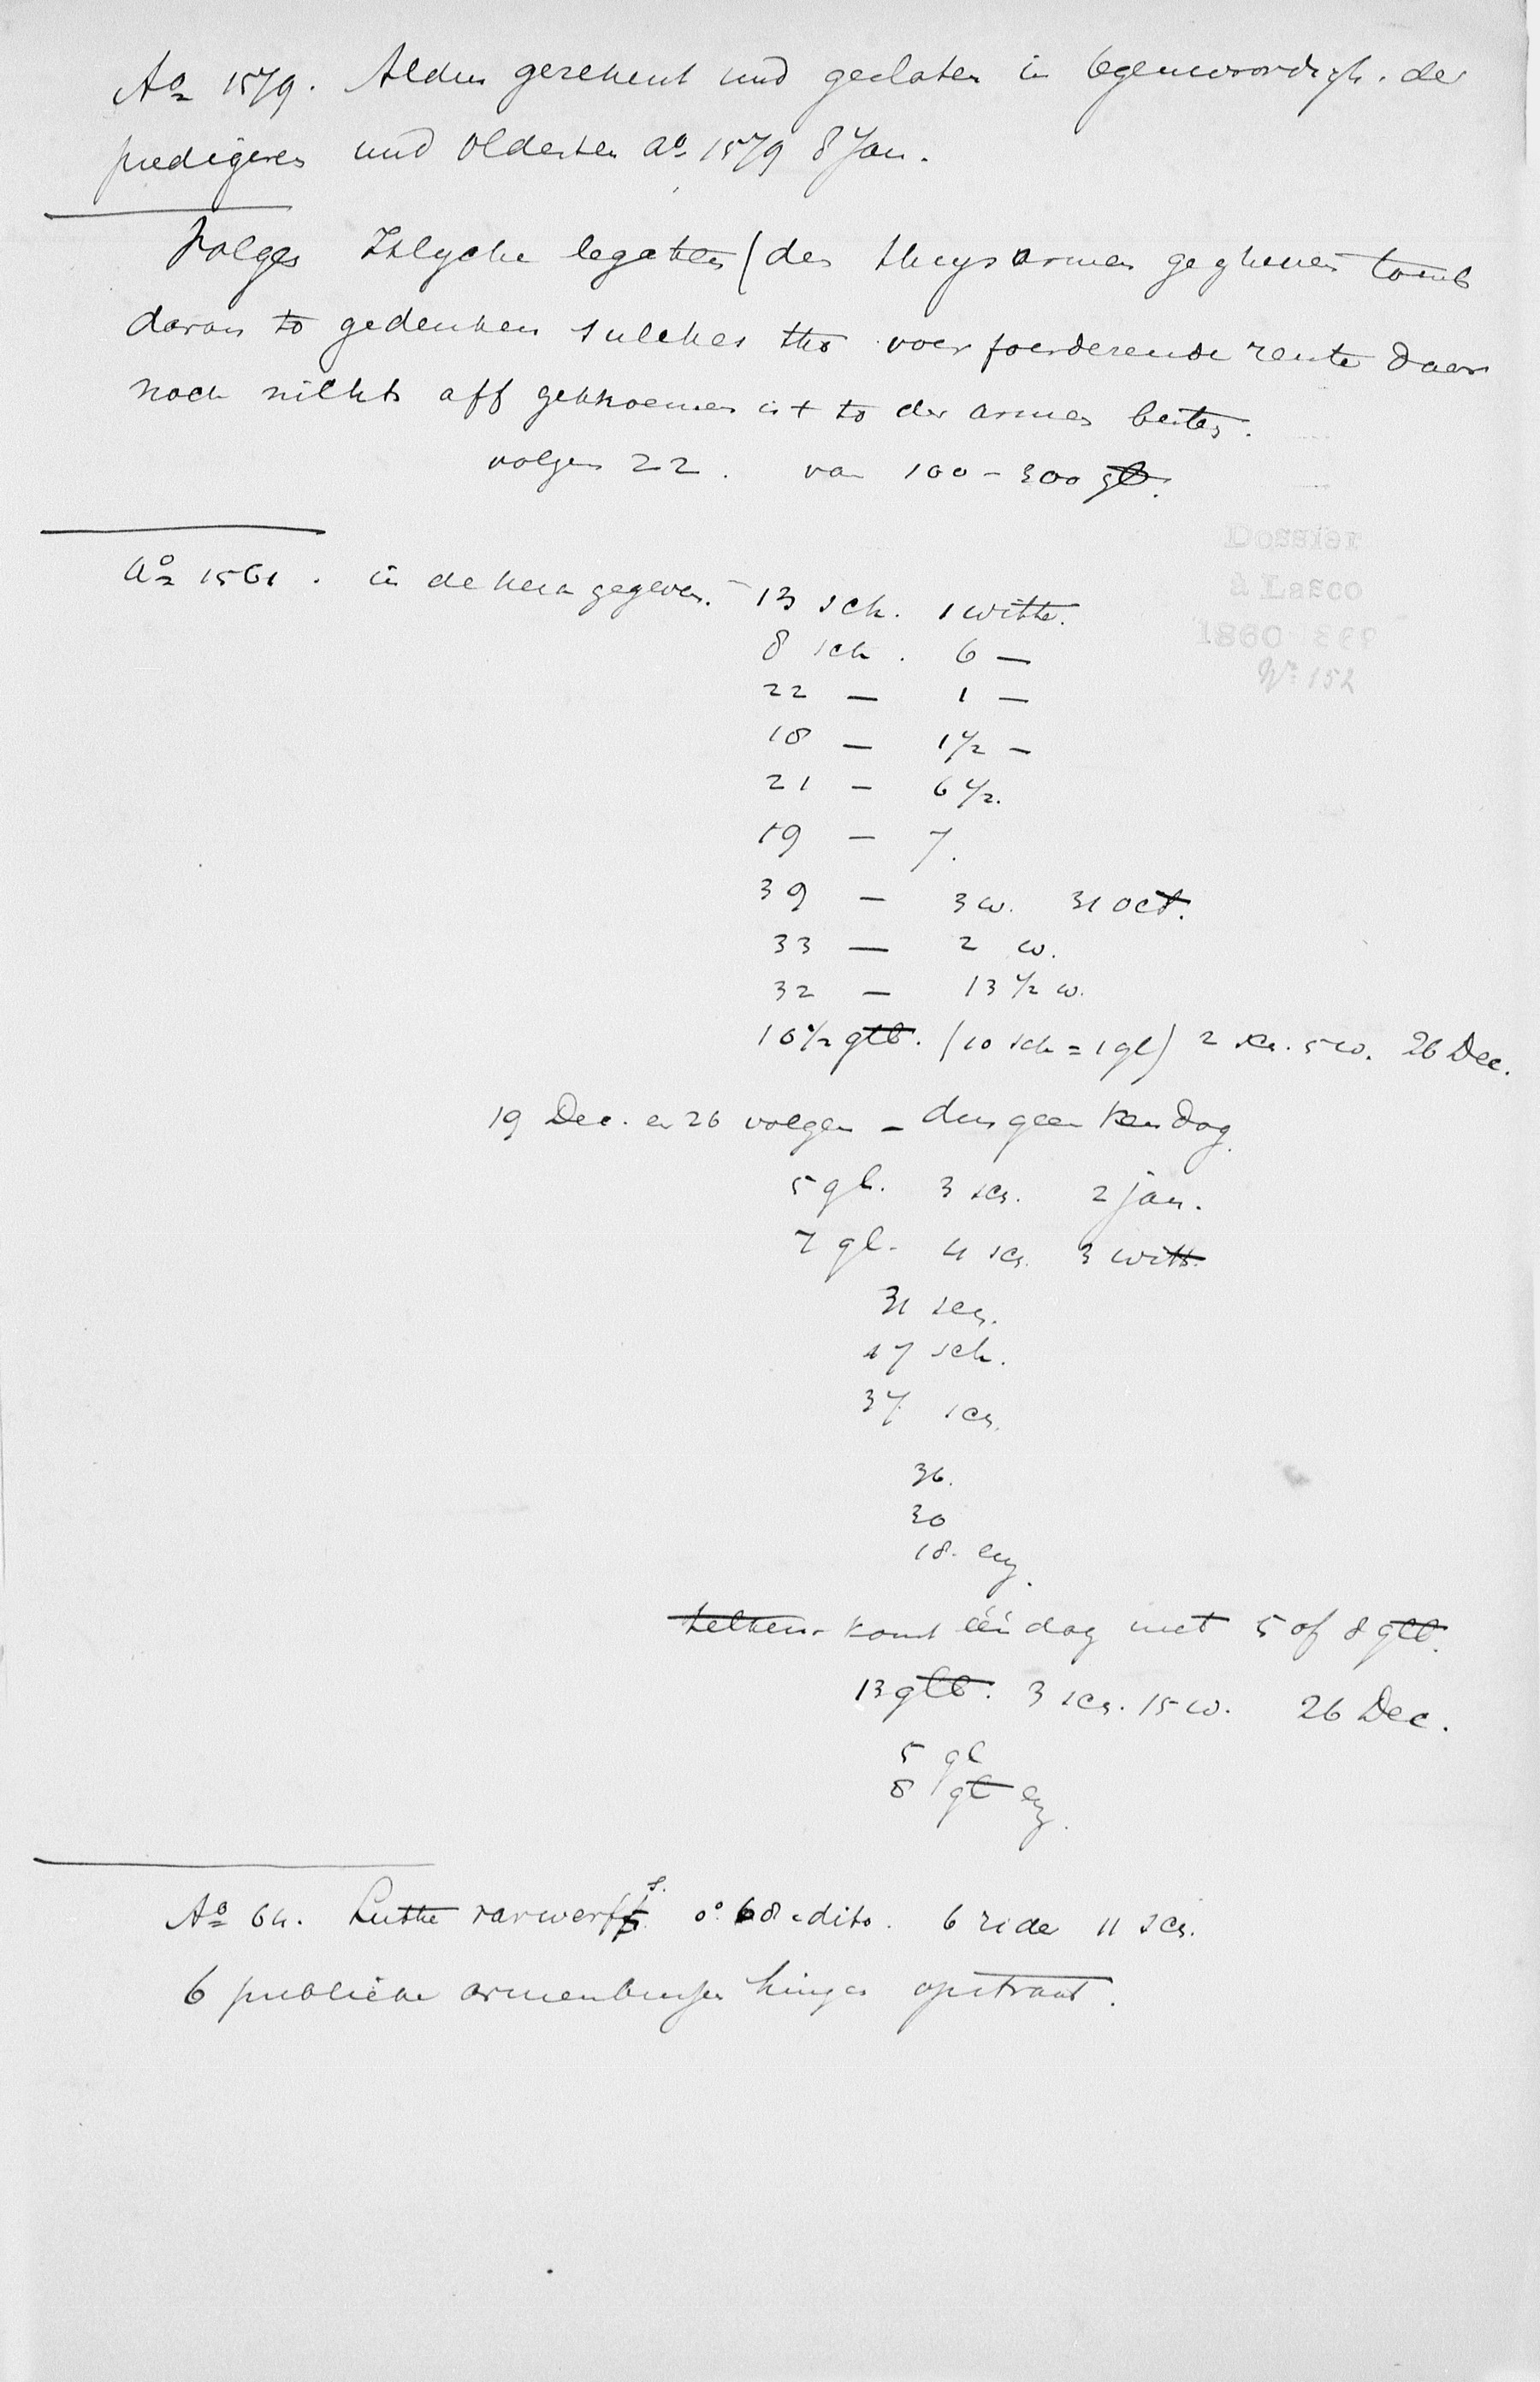 Aº 1579. Aldus gerekent und geslaten in tegenwoordigh. der
predigeren und Oldesten aº 1579 8 Jan.
Folgen Itlycke legaten (den Huysarmen geghenen
daran to gedencken sulckes tho voer foerderende rente daer
noch nichts aff gekhoemen ist to der armen besten.
volgen 22. van 100 - 300 gl.
Aº 1561. in de kerk gegeven. 13 sch. 1 witte.
8 sch. 6 —
22 — 1 —
18 — 1 1/2 —
21 — 6 1/2.
19 — 7.
39 — 3 w. 31 oct.
33 — 2 w.
32 — 13 1/2 w.
10 1/2 gld. (10 sch = 1 gl) 2 sch. 5 w. 26 Dec.
19 Dec. en 26 volgen - dus geen Kersdag.
5 gl. 3 sch. 2 jan.
7 gl. 4 sch. 3 witt.
31 sch.
17 sch.
37 sch.
36.
30
18. enz.
telkens komt één dag met 5 of 8 gld.
13 gld. 3 sch. 15 w. 26 Dec.
5 gl
8 gl enz.
Aº 64. Luthe 6 rider 11 sch.
6 publieke armenbussen hingen opstraat.
Dossier
à Lasco
1860
Nº 152